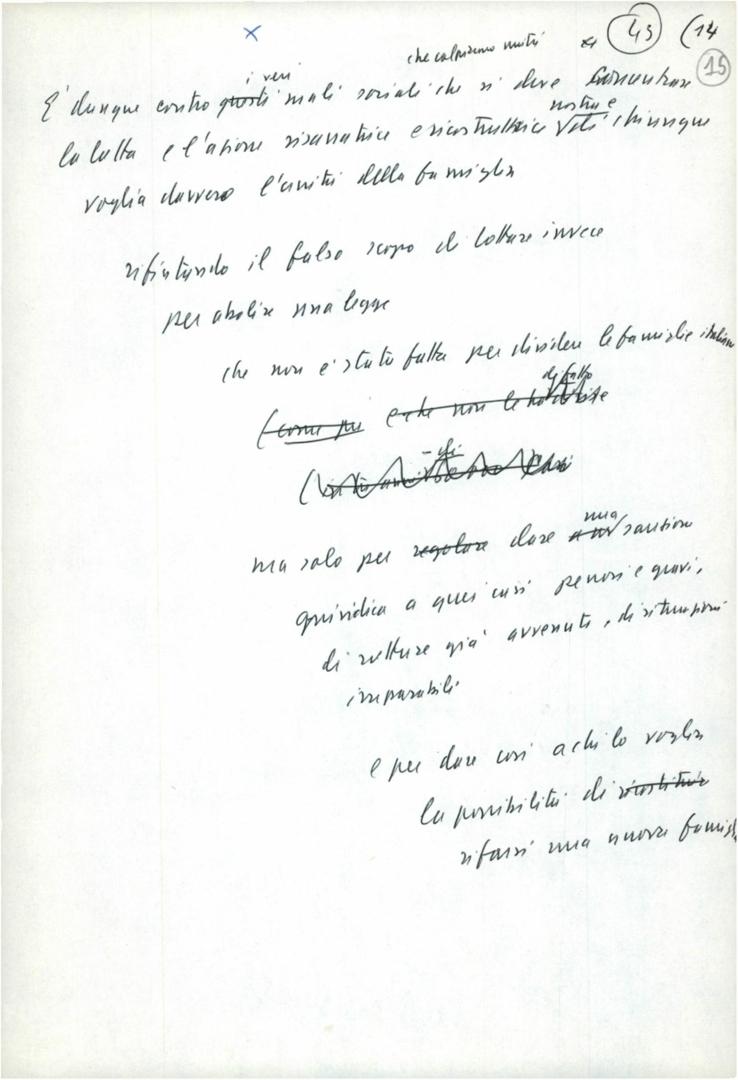 43 (14
15
che colpiscono
i veri
E' dunque contro questi mali sociali che si deve concentrare
nostra e
la lotta e l'azione risanatrice e ricostruttrice di chiunque
voglia davvero l'unità della famiglia
rifiutando il falso scopo di lottare invece
per abolire una legge
che non è stata fatta per dividere le famiglie italiane
di fatto
(come e che non le ha divise
ma solo per regolare dare una sanzione
giuridica a quei casi penosi e gravi,
di rotture già avvenute, di situazioni
irreparabili
e per dare così a chi lo voglia
la possibilità di ricostituire
rifarsi una nuova famiglia